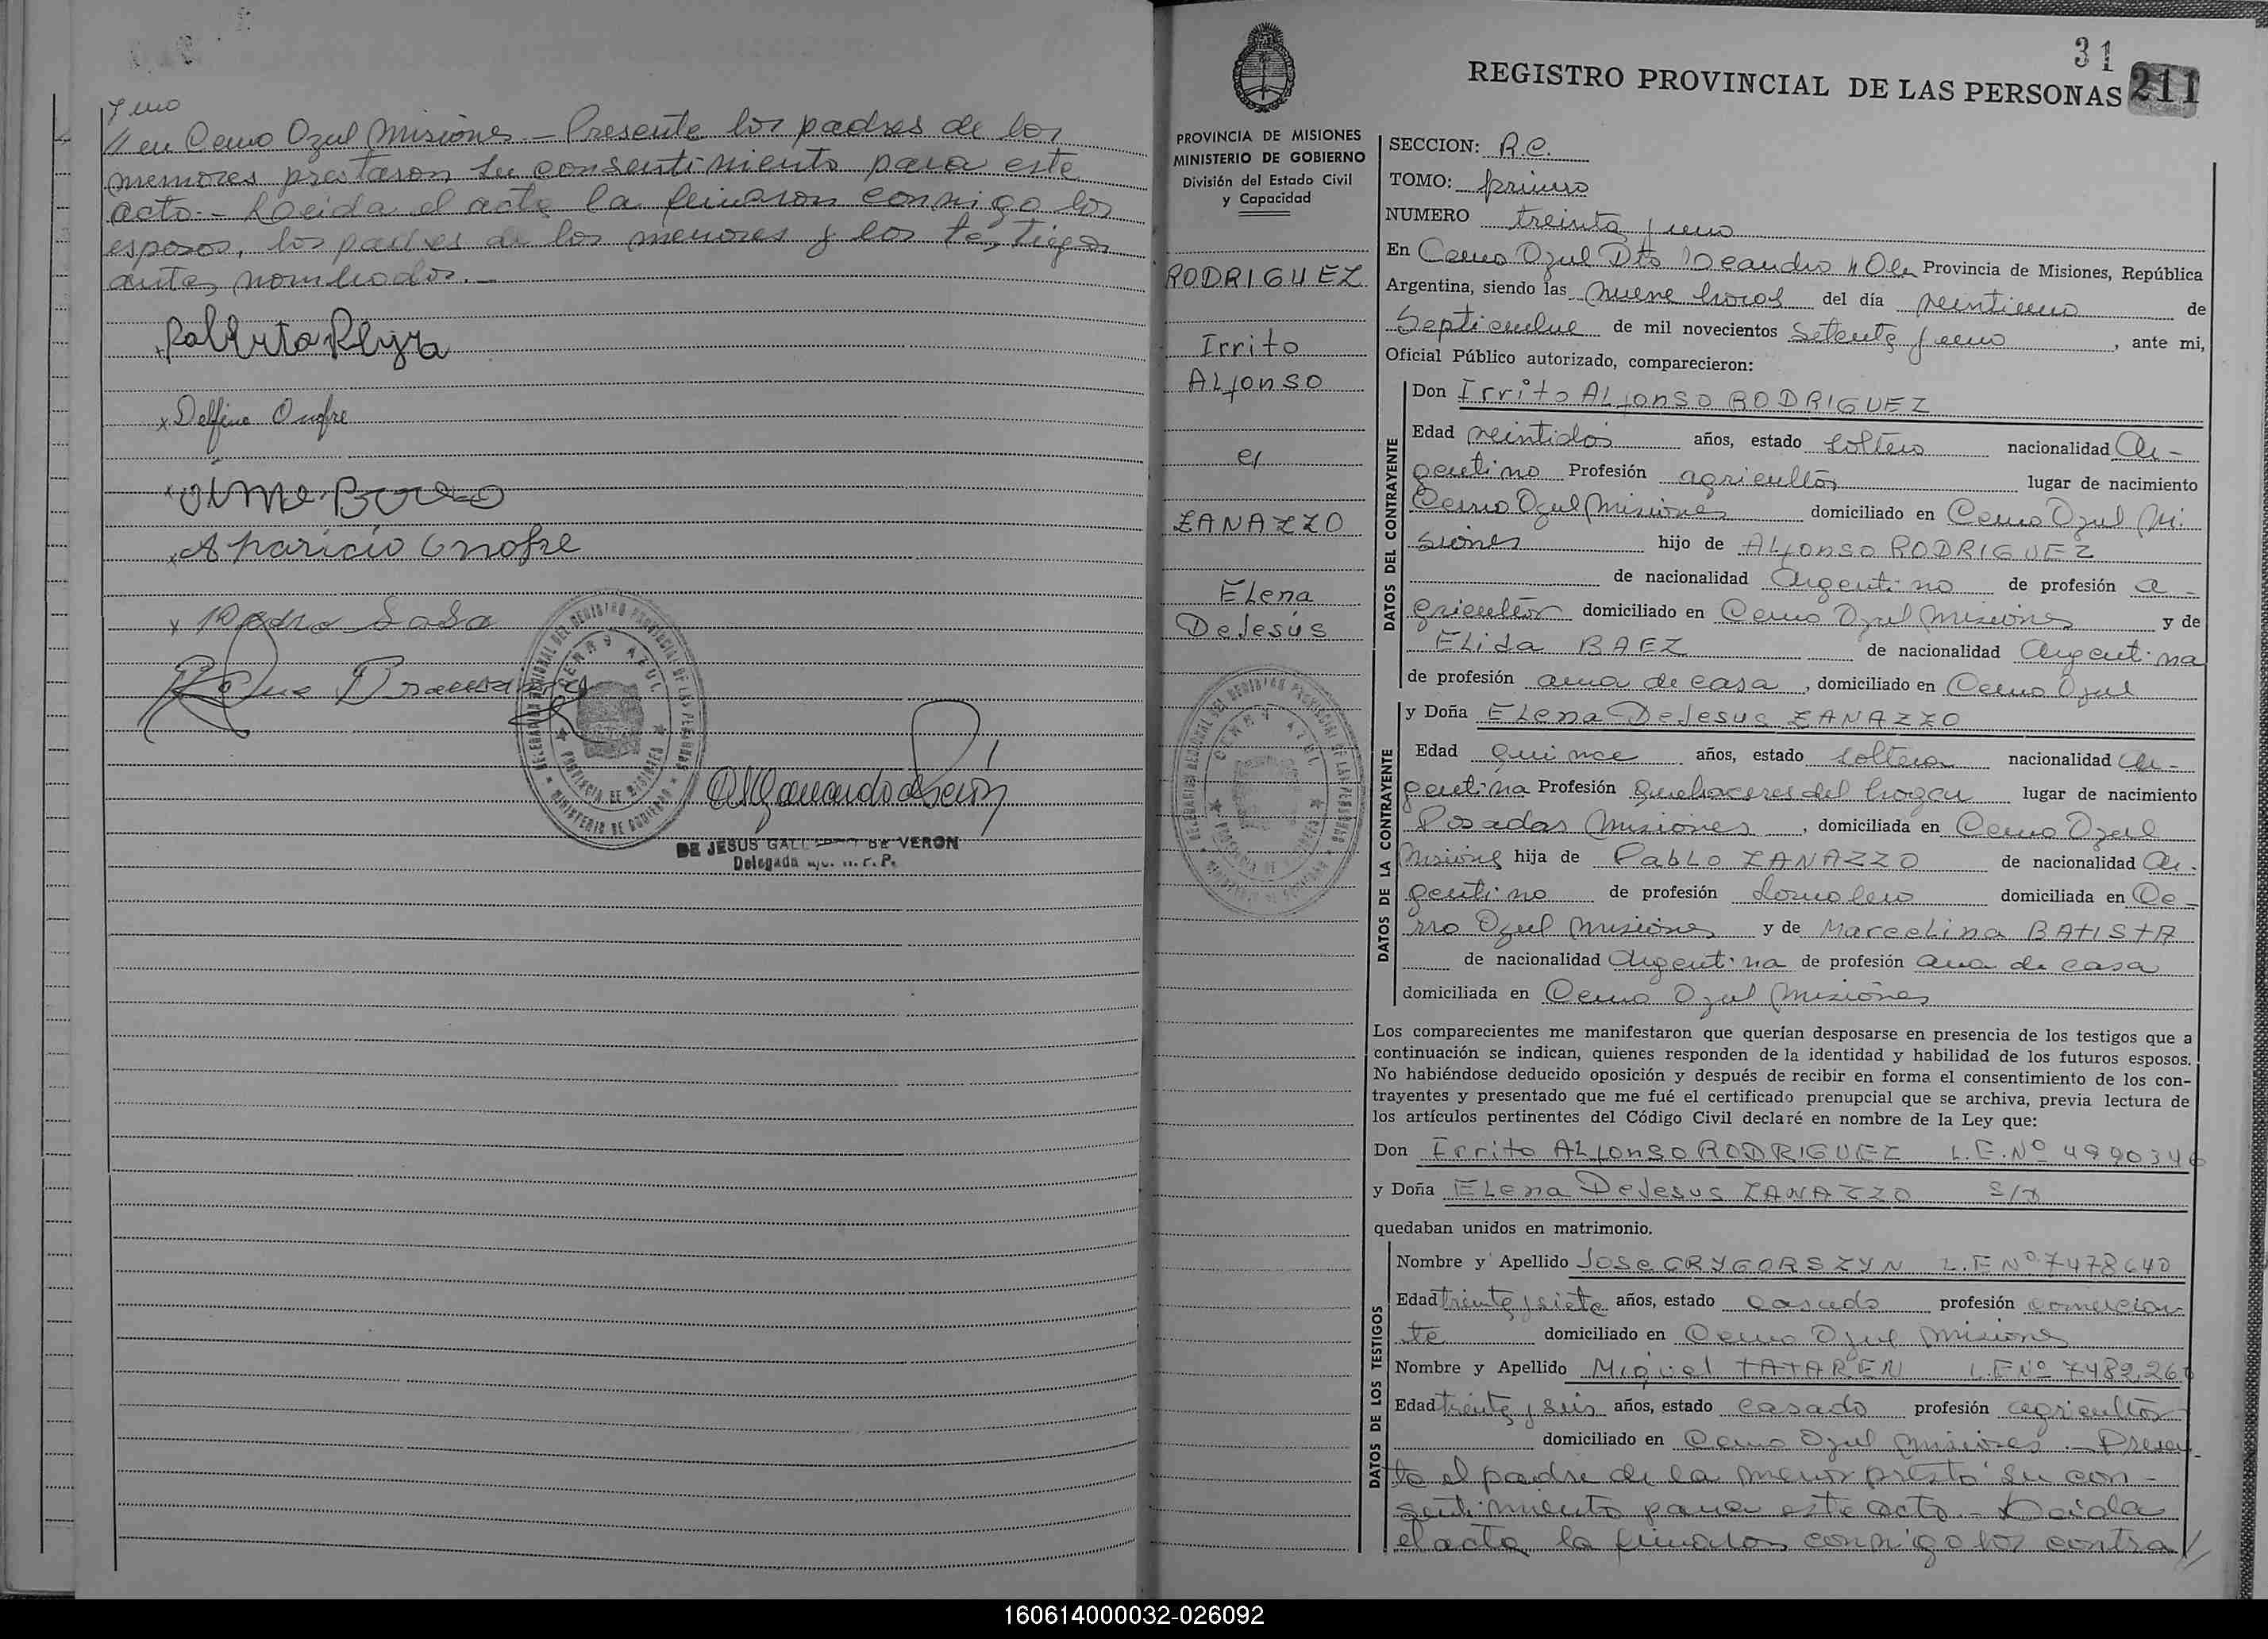 y uno
// en Cerro Azul Misiones - Presente los padres de los
menores prestaron su consentimiento para este
acto.- Leida el acta la firmaron conmigo los
esposos, los padres de los menores y los testigos
antes nombrados.-
Delfino Onofre
Aparicio Onofre
Pedro Sosa
DELEGACION REGIONAL DEL REGISTRO PROVINCIAL DE LAS PERSONAS
CERRO AZUL
PROVINCIA DE MISIONES
MINISTERIO DE GOBIERNO
DE JESUS GALL DE VERON
Delegada
31
211
REGISTRO PROVINCIAL DE LAS PERSONAS
PROVINCIA DE MISIONES
MINISTERIO DE GOBIERNO
División del Estado Civil
y Capacidad
RODRIGUEZ
Irrito
ALfonso
ZANAZZO
ELena
DeJesús
SECCION: R.C.
TOMO: primero
NUMERO treinta y uno
En Cerro Azul Dto Leandro N Alem Provincia de Misiones, República
Argentina, siendo las nueve horas del día veintiuno de
Septiembre de mil novecientos setenta y uno, ante mi,
Oficial Público autorizado, comparecieron:
DATOS DEL CONTRAYENTE
Don Irrito ALfonso RODRIGUEZ
Edad veintidos años, estado soltero nacionalidad Ar-
gentino Profesión agricultor lugar de nacimiento
Cerro Azul Misiones domiciliado en Cerro Azul Mi
siones hijo de ALfonso RODRIGUEZ
de nacionalidad Argentino de profesión a-
gricultor domiciliado en Cerro Azul Misiones y de
ELida BAEZ de nacionalidad Argentina
de profesión ama de casa, domiciliado en Cerro Azul
DATOS DE LA CONTRAYENTE
y Doña ELena DeJesus ZANAZZO
Edad quince años, estado soltera nacionalidad Ar-
gentina Profesión quehaceres del hogar lugar de nacimiento
Posadas Misiones, domiciliada en Cerro Azul
Misiones hija de PabLo ZANAZZO de nacionalidad Ar-
gentino de profesión domiciliada en Ce-
rro Azul Misiones y de MarceLina BATISTA
de nacionalidad Argentina de profesión ama de casa
domiciliada en Cerro Azul Misiones
Los comparecientes me manifestaron que querían desposarse en presencia de los testigos que a
continuación se indican, quienes responden de la identidad y habilidad de los futuros esposos.
No habiéndose deducido oposición y después de recibir en forma el consentimiento de los con-
trayentes y presentado que me fué el certificado prenupcial que se archiva, previa lectura de
los artículos pertinentes del Código Civil declaré en nombre de la Ley que:
Don Irrito ALfonso RODRIGUEZ L.E.Nº 4990346
y Doña ELena DeJesus ZANAZZO
quedaban unidos en matrimonio.
DATOS DE LOS TESTIGOS
Nombre y Apellido Jose GRYGORSZYN L.E Nº 7478640
Edad treinta y siete años, estado casado profesión comercian
te domiciliado en Cerro Azul Misiones
Nombre y Apellido Miguel TATAREN L.E Nº 7482.26
Edad treinta y seis años, estado casado profesión agricultor
domiciliado en Cerro Azul Misiones .- Presen-
te el padre de la menor prestó su con-
sentimiento para este acto.- Leida
el acta la firmaron conmigo los contra//
160614000032-026092